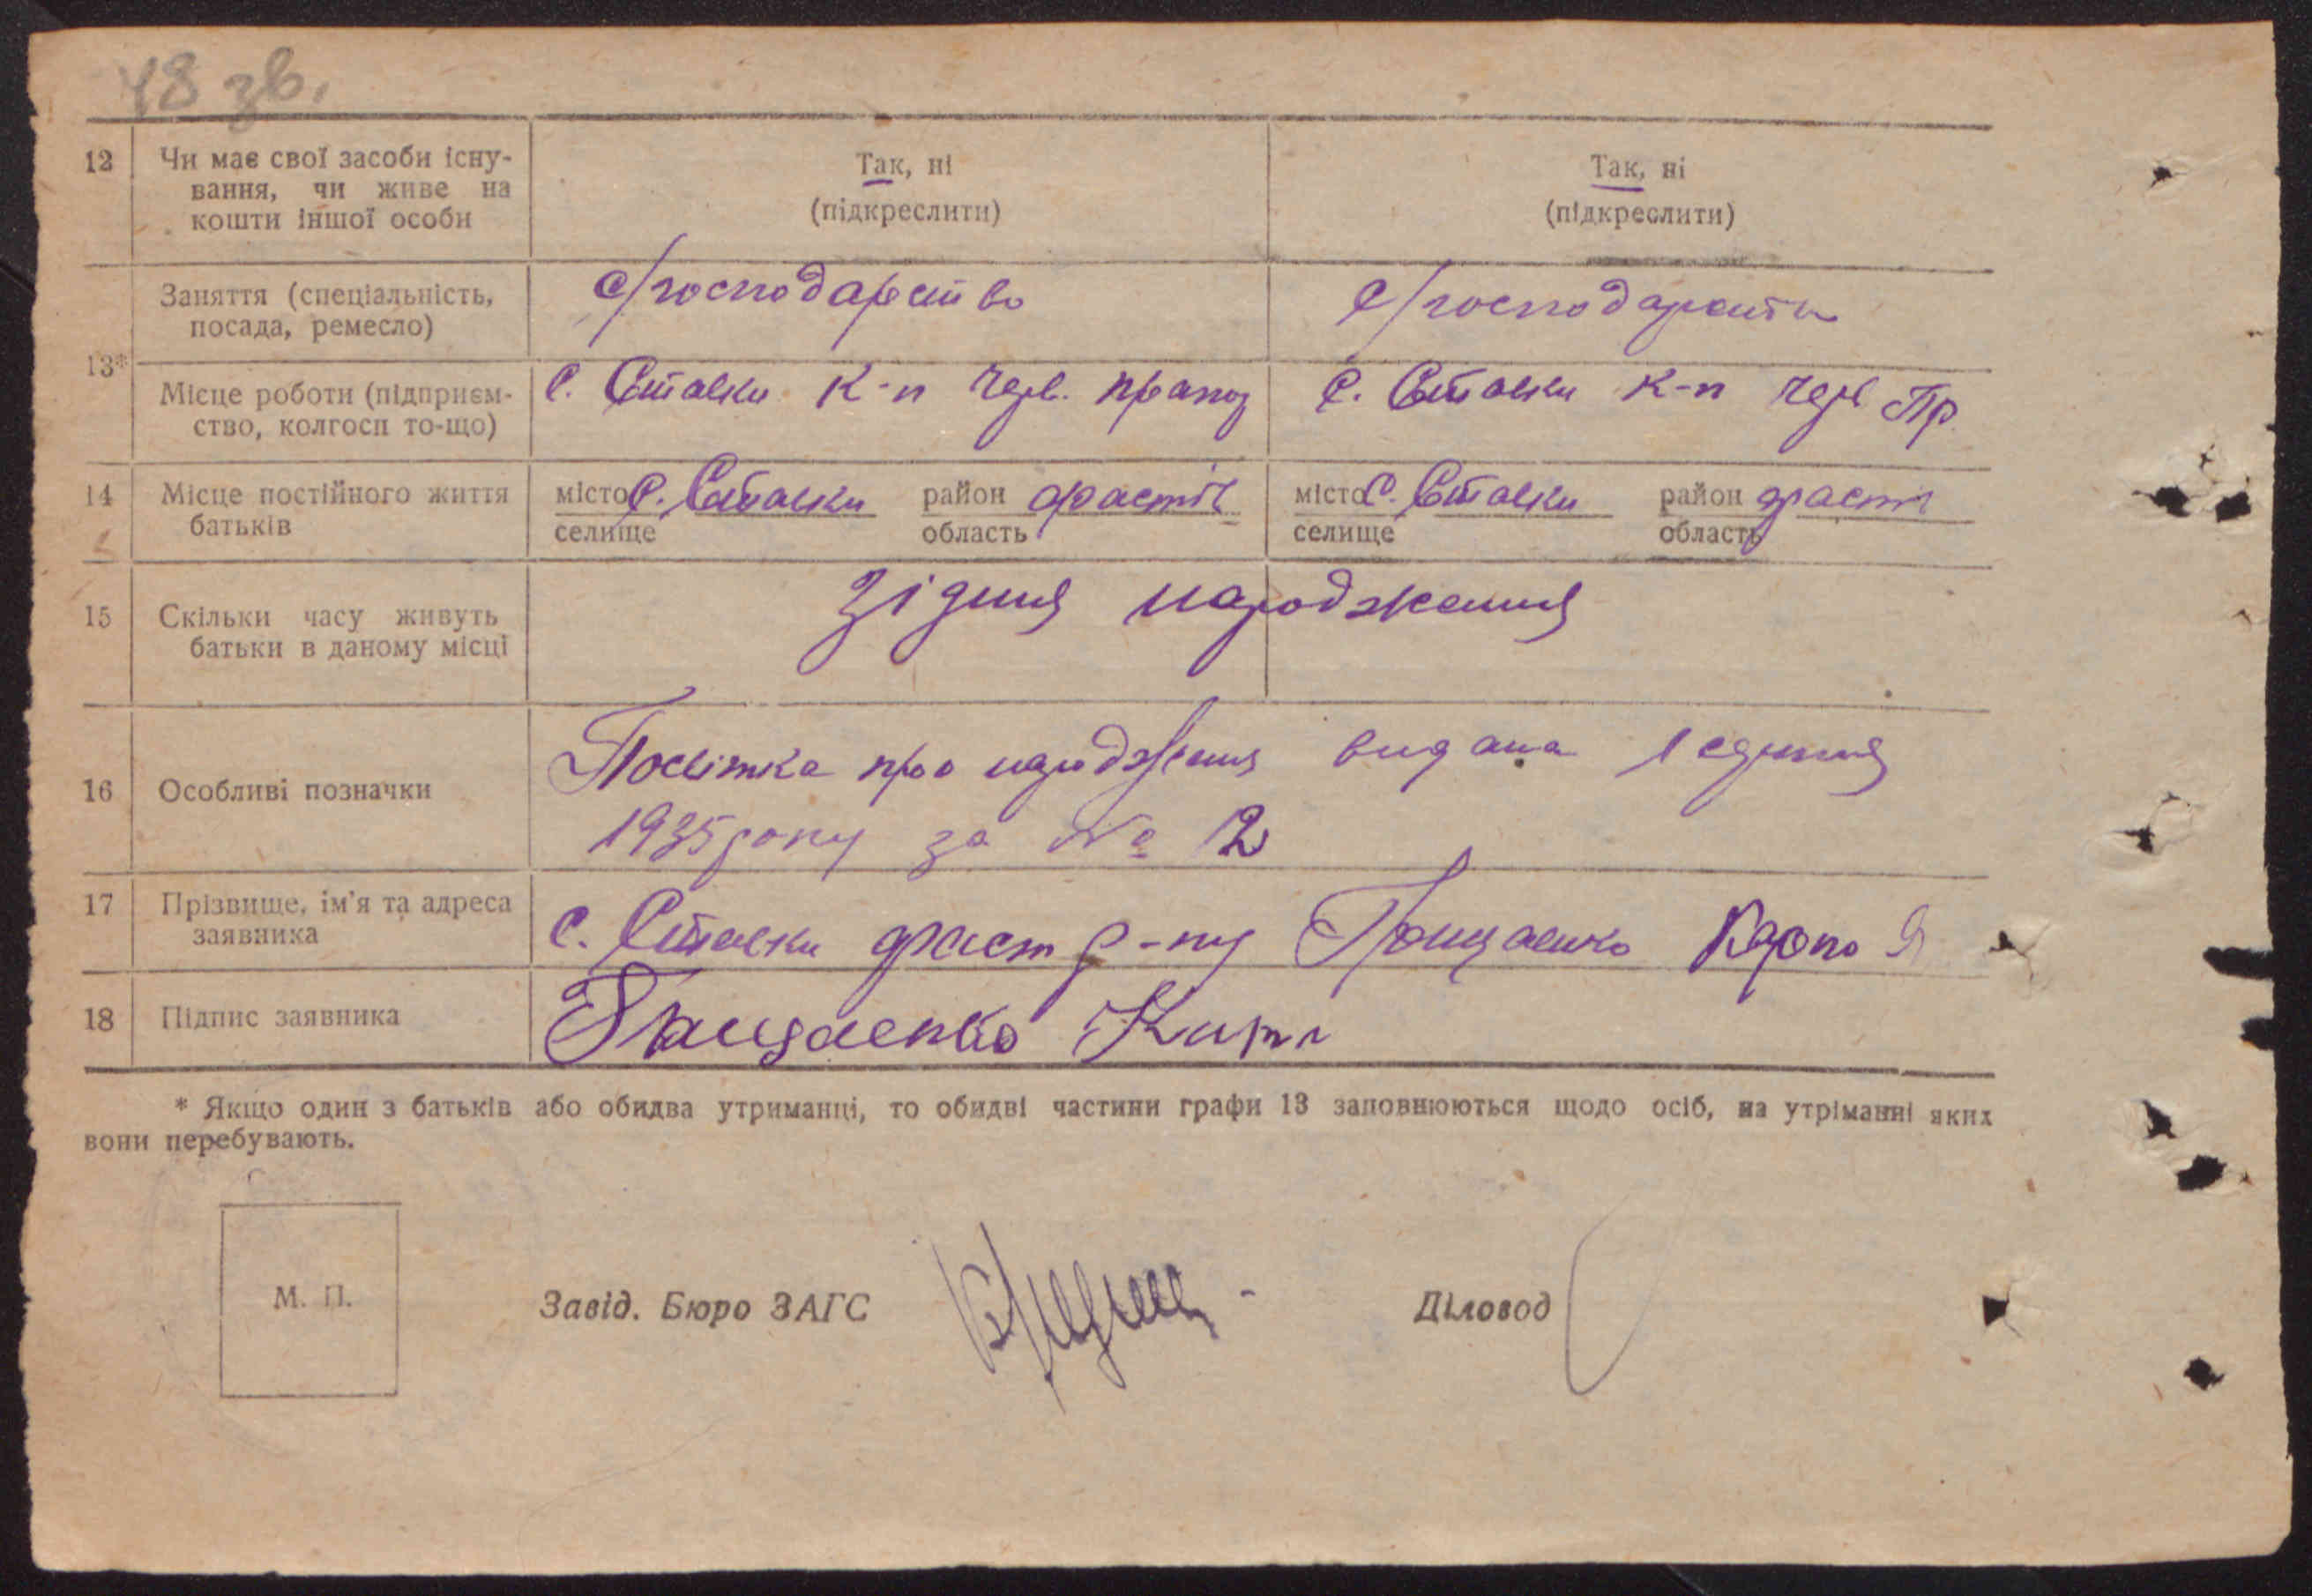 48 зв.
12 Чи має свої засоби існу-
вання, чи живе на
кошти іншої особи
Так, ні
(підкреслити)
Так, ні
(підкреслити)
13*
Заняття (спеціальність,
посада, ремесло)
с/господарство
с/господарств
Місце роботи (підприєм-
ство, колгосп то-що)
С. Ставки к-п черв. прапор
С. Ставки к-п черв Пр
14 Місце постійного життя
батьків
місто с. Ставки район Фастів
селище область
місто с. Ставки район Фаст
селище область
15 Скільки часу живуть
батьки в даному місці
зі дня народження
16 Особливі позначки
Посвітка про народження видана 1 січня
1935 року за № 2
17 Прізвище, ім'я та адреса
заявника
с. Ставки Фаст р-ну Карпо Я
18 Підпис заявника
* Якщо один з батьків або обидва утриманці, то обидві частини графи 13 заповнюються щодо осіб, на утріманні яких
вони перебувають.
М. П.
Завід. Бюро ЗАГС
Діловод